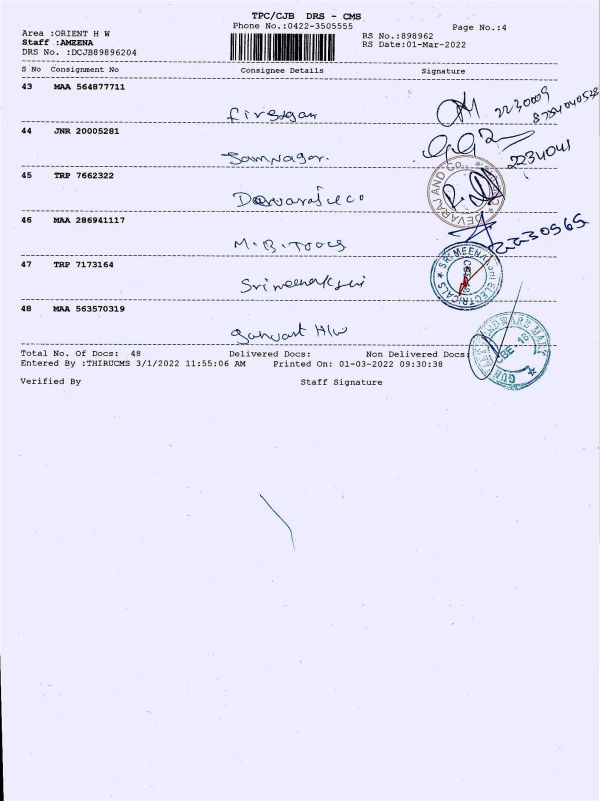 TPC/CJB DRS - CMS
Phone No.:0422-3505555
Page No.:4
Area :ORIENT H W
RS No.:898962
Staff :AMEENA
RS Date:01-Mar-2022
DRS No. :DCJB89896204
S No Consignment No Consignee Details Signature
43 MAA 564877711
2230009
44 JNR 20005281
2234041
45 TRP 7662322
DEVARAJ AND CO.,
46 MAA 286941117
M.B. Tools
2230565
47 TRP 7173164
SRI MEENAKSHI ELECTRICALS
Srimeenakshi
48 MAA 563570319
H/W
Total No. Of Docs: 48 Delivered Docs: Non Delivered Docs:
Entered By :THIRUCMS 3/1/2022 11:55:06 AM Printed On: 01-03-2022 09:30:38
Verified By Staff Signature